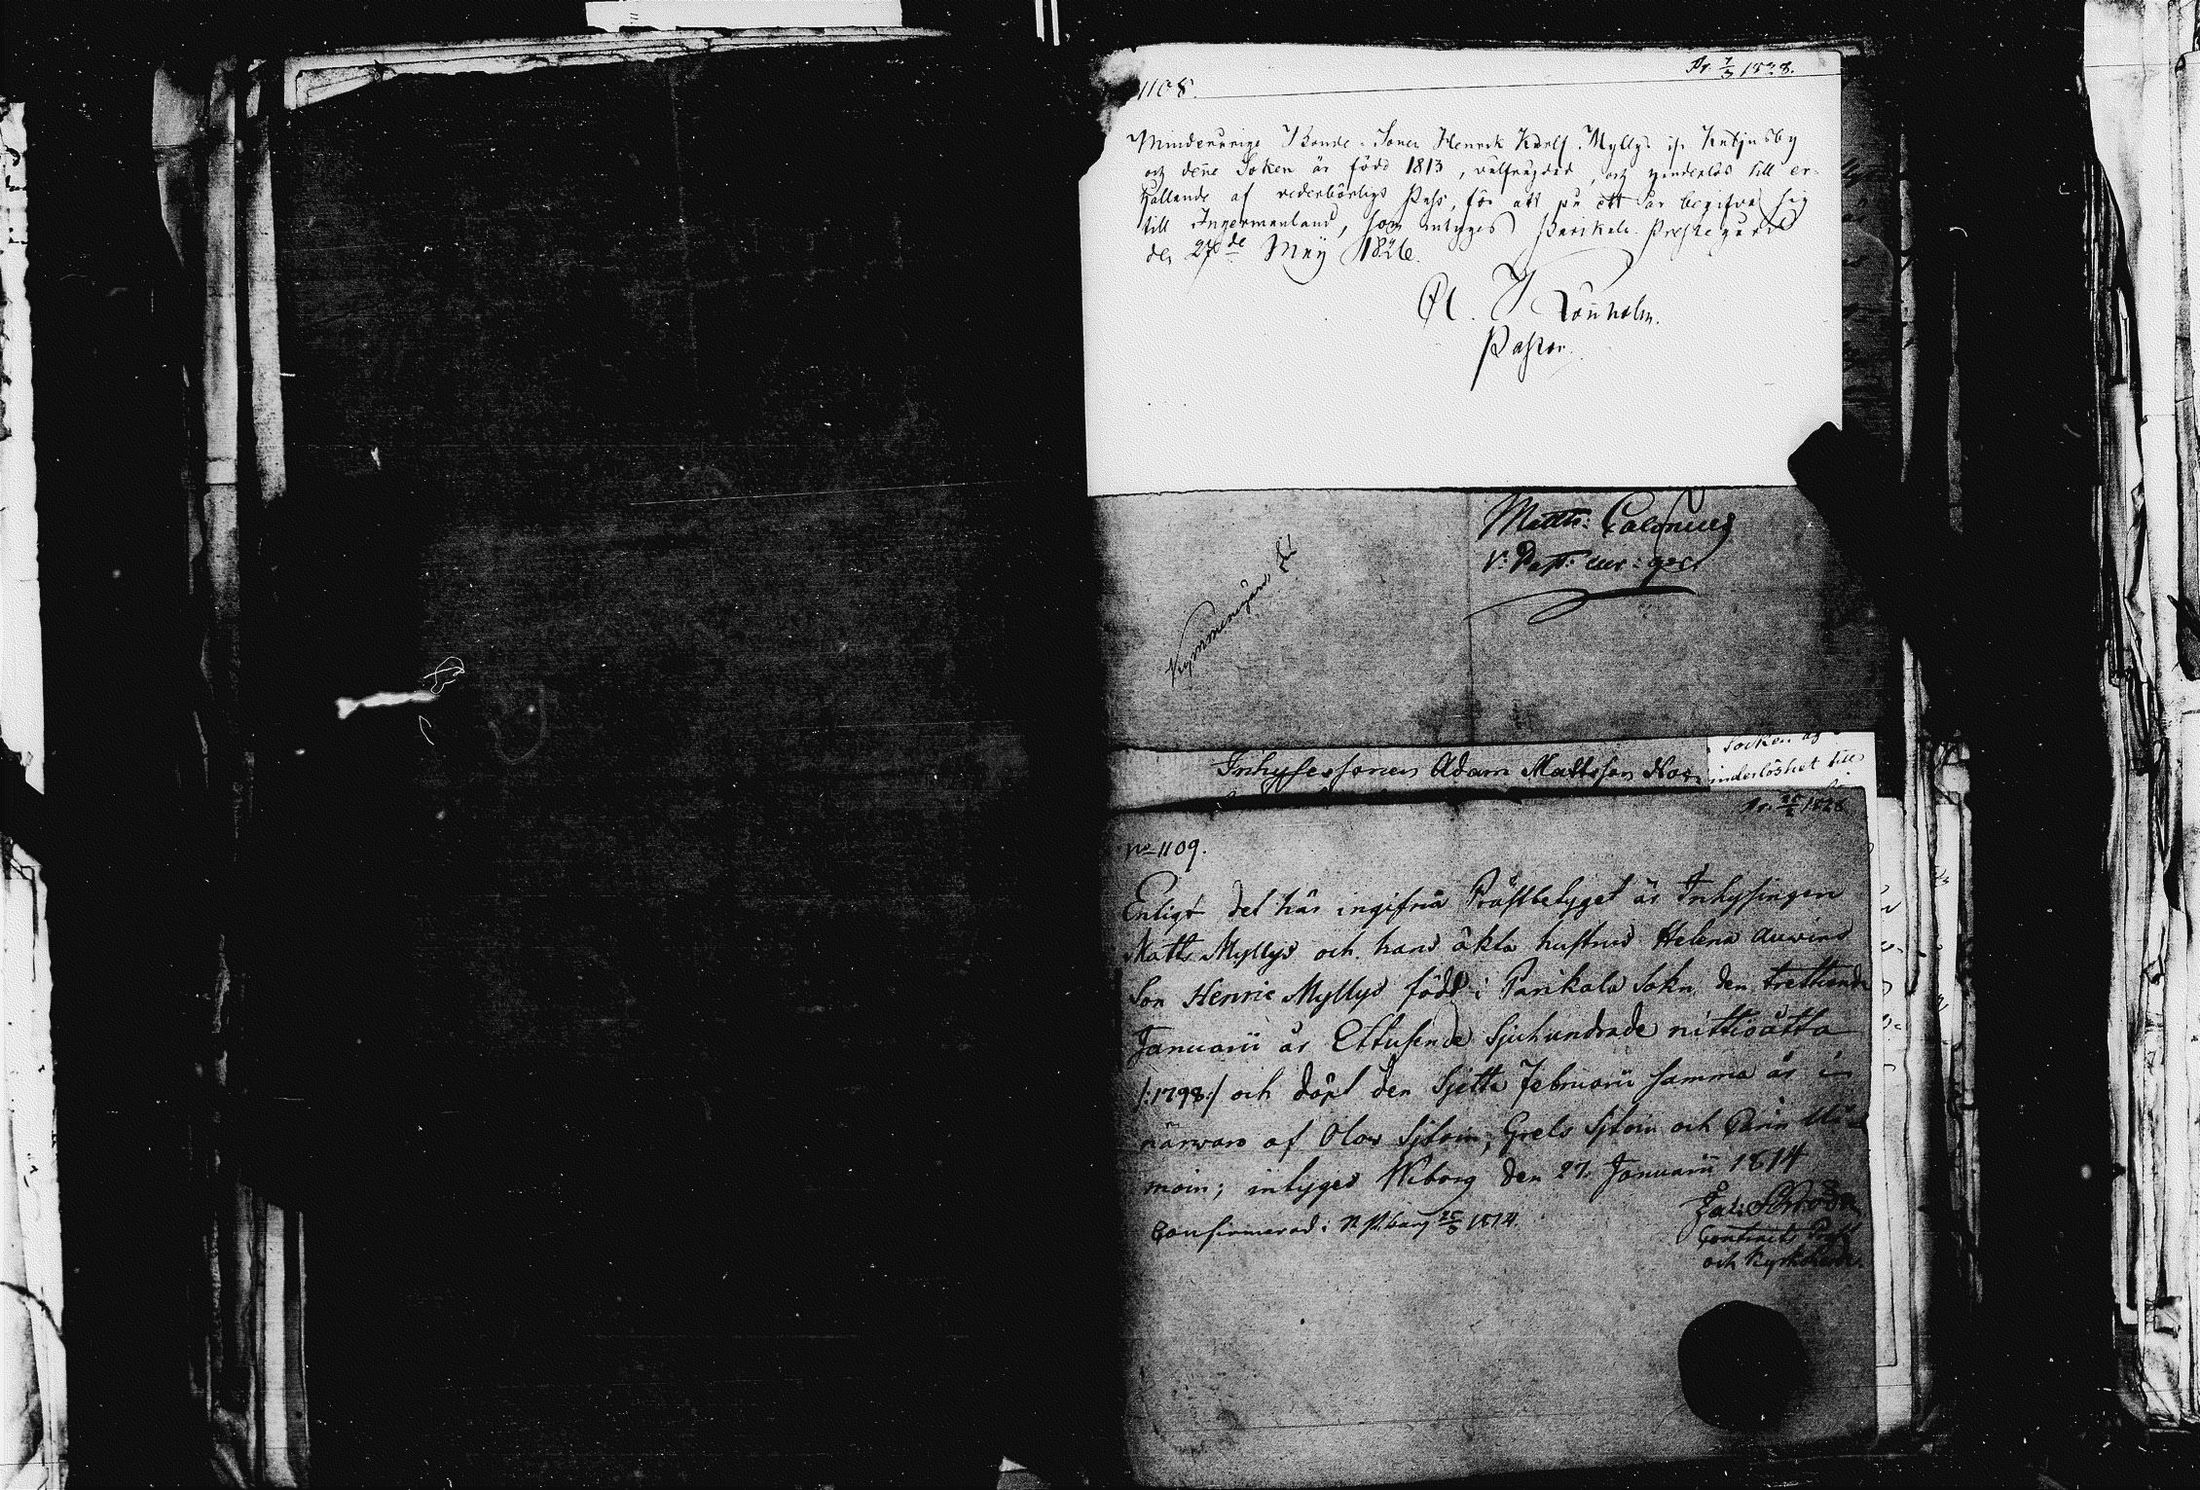 1108.
Pr. 7/3 1828.
Minderårige Bonde-Sonen Henrik Karlss. Myllys ifr.
och deñe Soken är född 1813, välfrägdad, och hinderlös till er-
hållande af vederbörligt Pass, för att på ett år begifva sig
till Ingermanland, som intygas Parikala Prestegård
den 27de Maij 1826.
Pastor.
Matth: Calonius
V: Past:
Kymmenegård
Inhysessonen Adam Mattsson
Socken af
inderlöshet till
1828
No 1109.
Enligt det här ingifna Prästbetyget är Inhysingen
Matts Myllys och hans äkta hustrus Helena Auvines
Son Henric Myllys född i Parikala Sokn den trettonde
Januarii år Ettusende Sjuhundrade nittioåtta
/:1798:/ och döpt den Sjette Februarii samma år i
närwaro af Olav Sitoin, Grels Sitoin och Carin
moin; intyges Wiborg den 27. Januarii 1814
Confirmerad i 1814.
Contracts Prost
och Kyrkoherde.